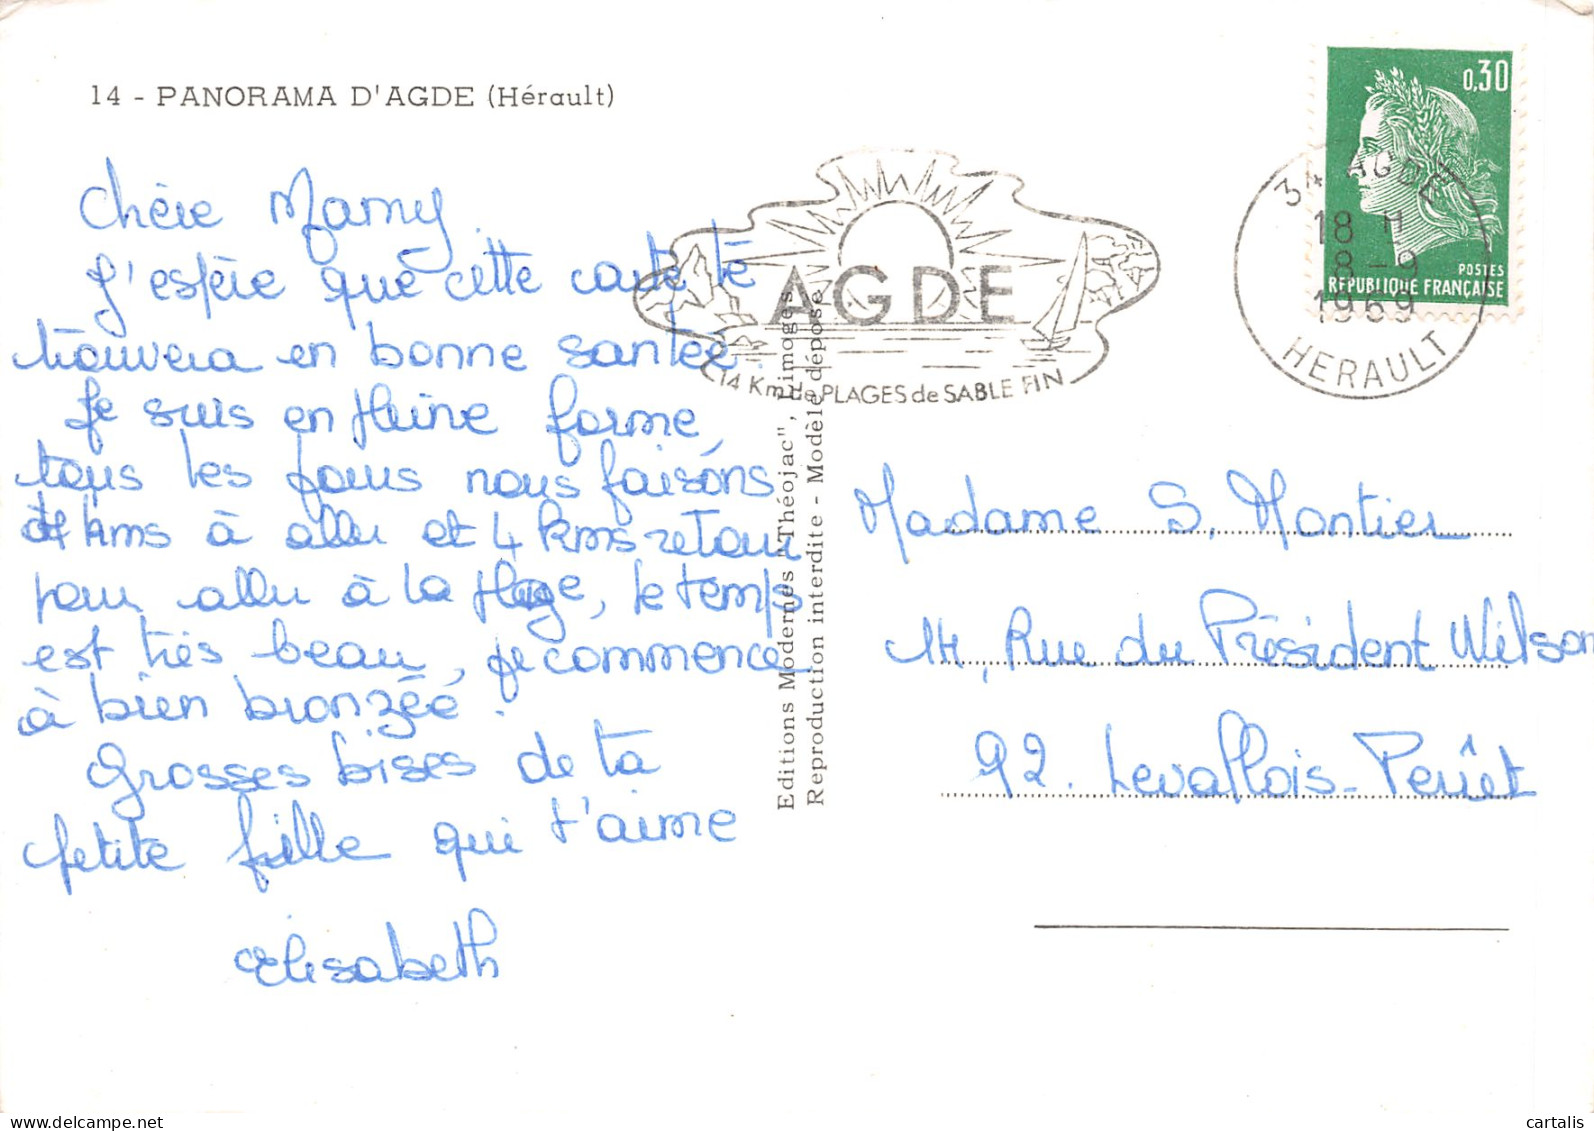 14 - PANORAMA D'AGDE (Hérault)
Chère Mamy
J'espère que cette carte te
trouvera en bonne santée.
Je suis en pleine forme,
tous les jours nous faisons
4 kms à aller et 4 kms retour
pour aller à la plage, le temps
est très beau, je commence
à bien bronzée.
Grosses bises de ta
petite fille qui t'aime
Elisabeth
AGDE
14 Km de PLAGES de SABLE FIN
0,30
POSTES
REPUBLIQUE FRANÇAISE
34 AGDE
18 H
8-9
1969
HERAULT
Editions Modernes "Théojac", Limoges
Reproduction interdite - Modèle déposé
Madame S. Montier
14, Rue du Président Wilson
92. Levallois-Perret
cartalis